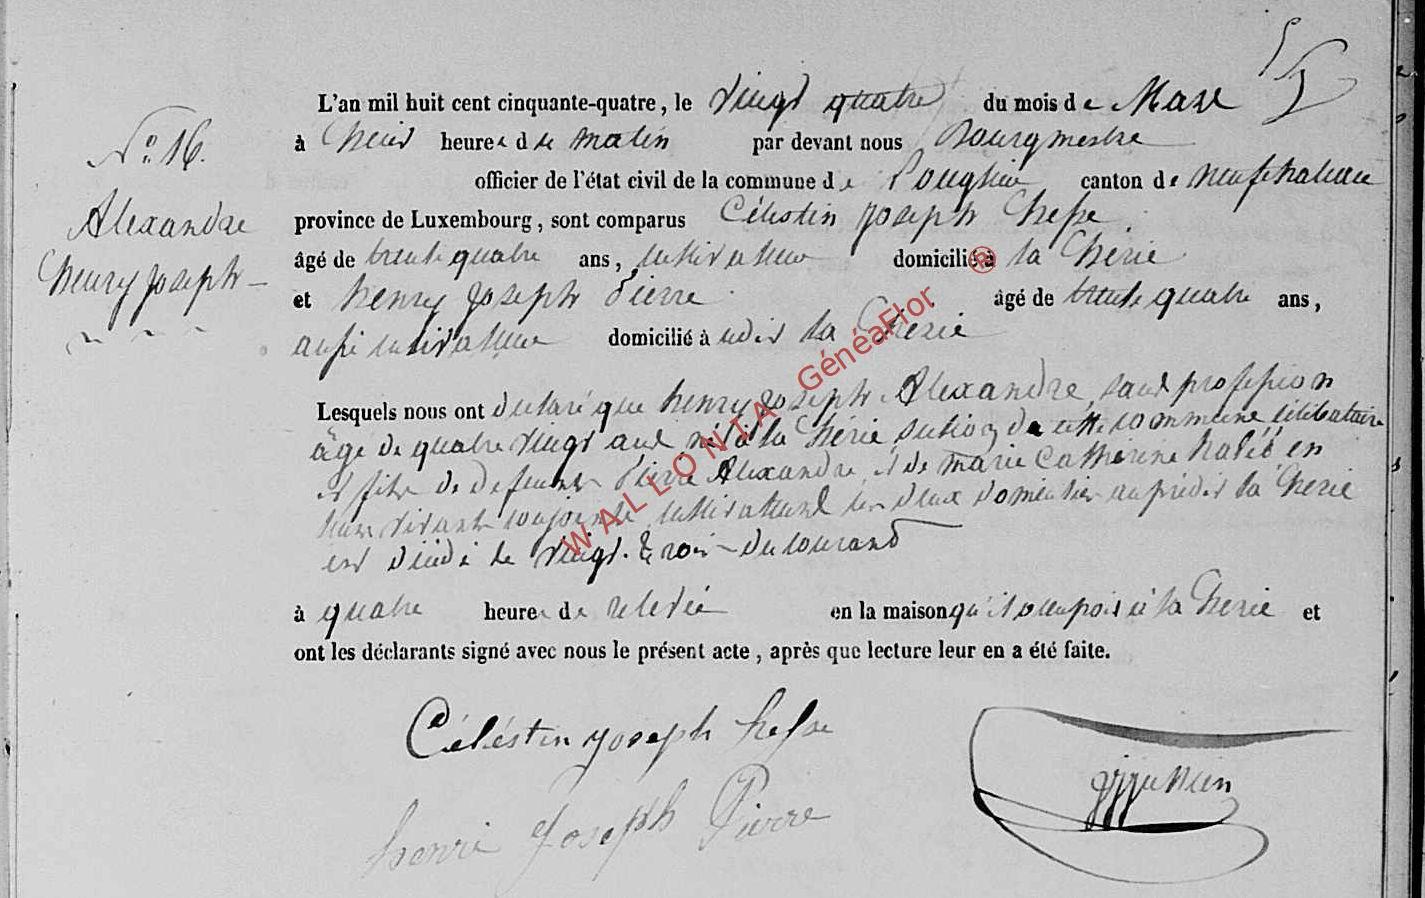 L'an mil huit cent cinquante-quatre, le vingt quatre du mois de Mars
N° 16.
à heures du matin par devant nous Bourgmestre
officier de l'état civil de la commune de Longlier canton de neufchateau
Alexandre
province de Luxembourg, sont comparus Célestin Joseph
henry joseph
âgé de trente quatre ans, cultivateur domicilié à la Cherie
et henry Joseph Pierre âgé de trente quatre ans,
aussi cultivateur domicilié à la Cherie
Lesquels nous ont déclaré que henry joseph Alexandre, sans profession
âgé de quatre vingt ans né à la Cherie section de cette commune, célibataire
et fils de defunts Pierre Alexandre, et de marie Catherine en
leur vivant conjoints cultivateurs les deux domiciliés la Cherie
est décédé le vingt-trois du courant
à quatre heures de relevée en la maison qu'il occupois à la Cherie et
ont les déclarants signé avec nous le présent acte, après que lecture leur en a été faite.
Céléstin joseph
henri Joseph Pierre
WALLONIA GénéaFlor ®